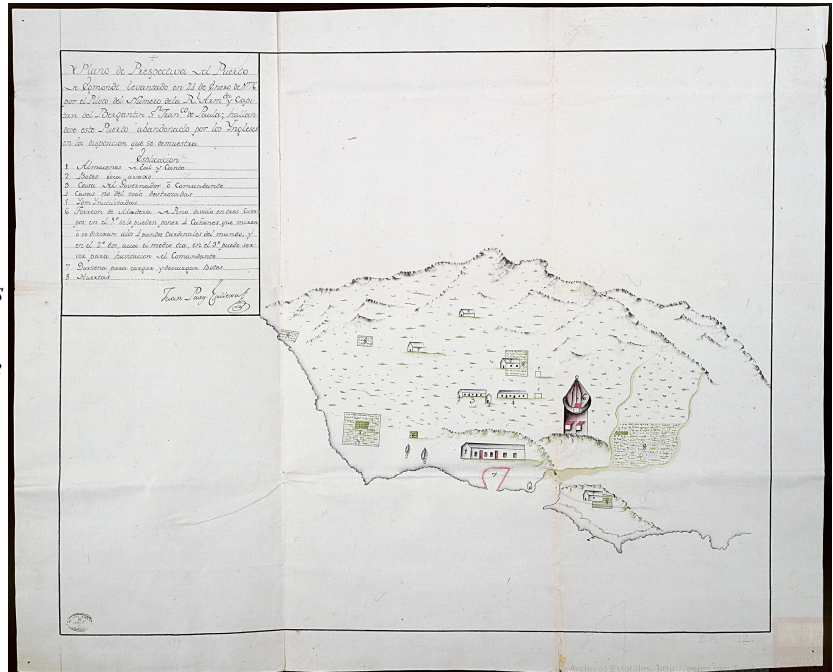 Plano de Prespectiva del Puerto
de Egmond. Levantado en 24 de Enero de
por el Piloto del Número de la Rl. Armda. y Capi-
tan del Bergantin Sn. Franco. de Paula; hallan
dose este Puerto abandonado por los Yngleses
en la disposicion que se demuestra.
Esplicacion
1 Almacenes de Cal y Canto
2 Botes
3 Casa del Governador ó Comandante
4 Casas no del todo destrozadas
5 Ydem Ynutilizadas
6 Torreon de Madera de Pino
en el pueden poner 4 Cañones que miren
4 puntos cardinales del mundo; y
en el 2º dos, acia el medio dia, en el 3º puede ser-
vir para havitacion del Comandante
7 Darsena para cargar, y descargar Botes
8 Huertas
Juan Pasq. Callexas
3
4
6
7
8
Archivos Estatales, http